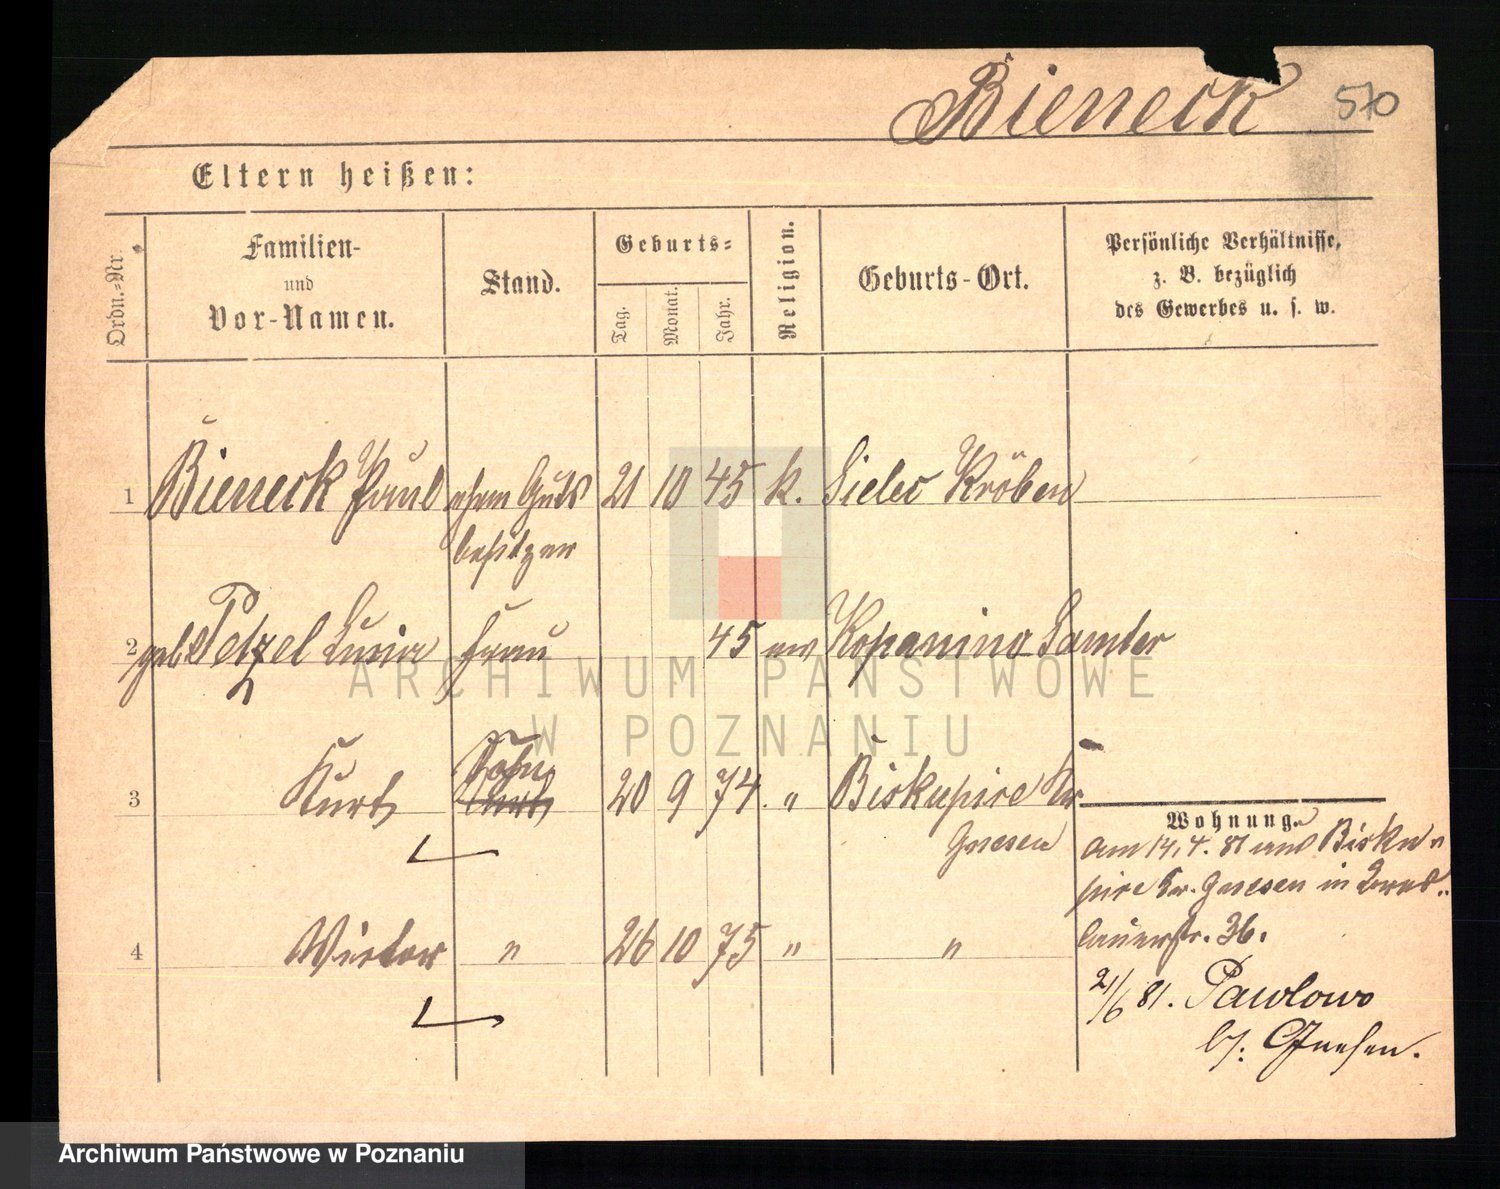 Bieneck 570
Eltern heißen:
Ordn.-Nr.
Familien-
und
Vor-Namen.
Stand.
Geburts-
Tag.
Monat.
Jahr.
Religion.
Geburts-Ort.
Persönliche Verhältnisse,
z. B. bezüglich
des Gewerbes u. s. w.
1 Bieneck Paul ehem Guts 21 10 45 k. Sielec Kröben
besitzer
2 geb. Petzel Lucia Frau 45 ev Kopanina Samter
3 Kurt Sohn 20 9 74. " Biskupice Kr
Gnesen
4 Victor " 26 10 75 " "
Wohnung.
am 14.4.81 aus Bisku-
pice Kr. Gnesen in Bres-
lauerstr. 36.
2/6 81. Pawlowo
b/: Gnesen.
ARCHIWUM PAŃSTWOWE
W POZNANIU
Archiwum Państwowe w Poznaniu